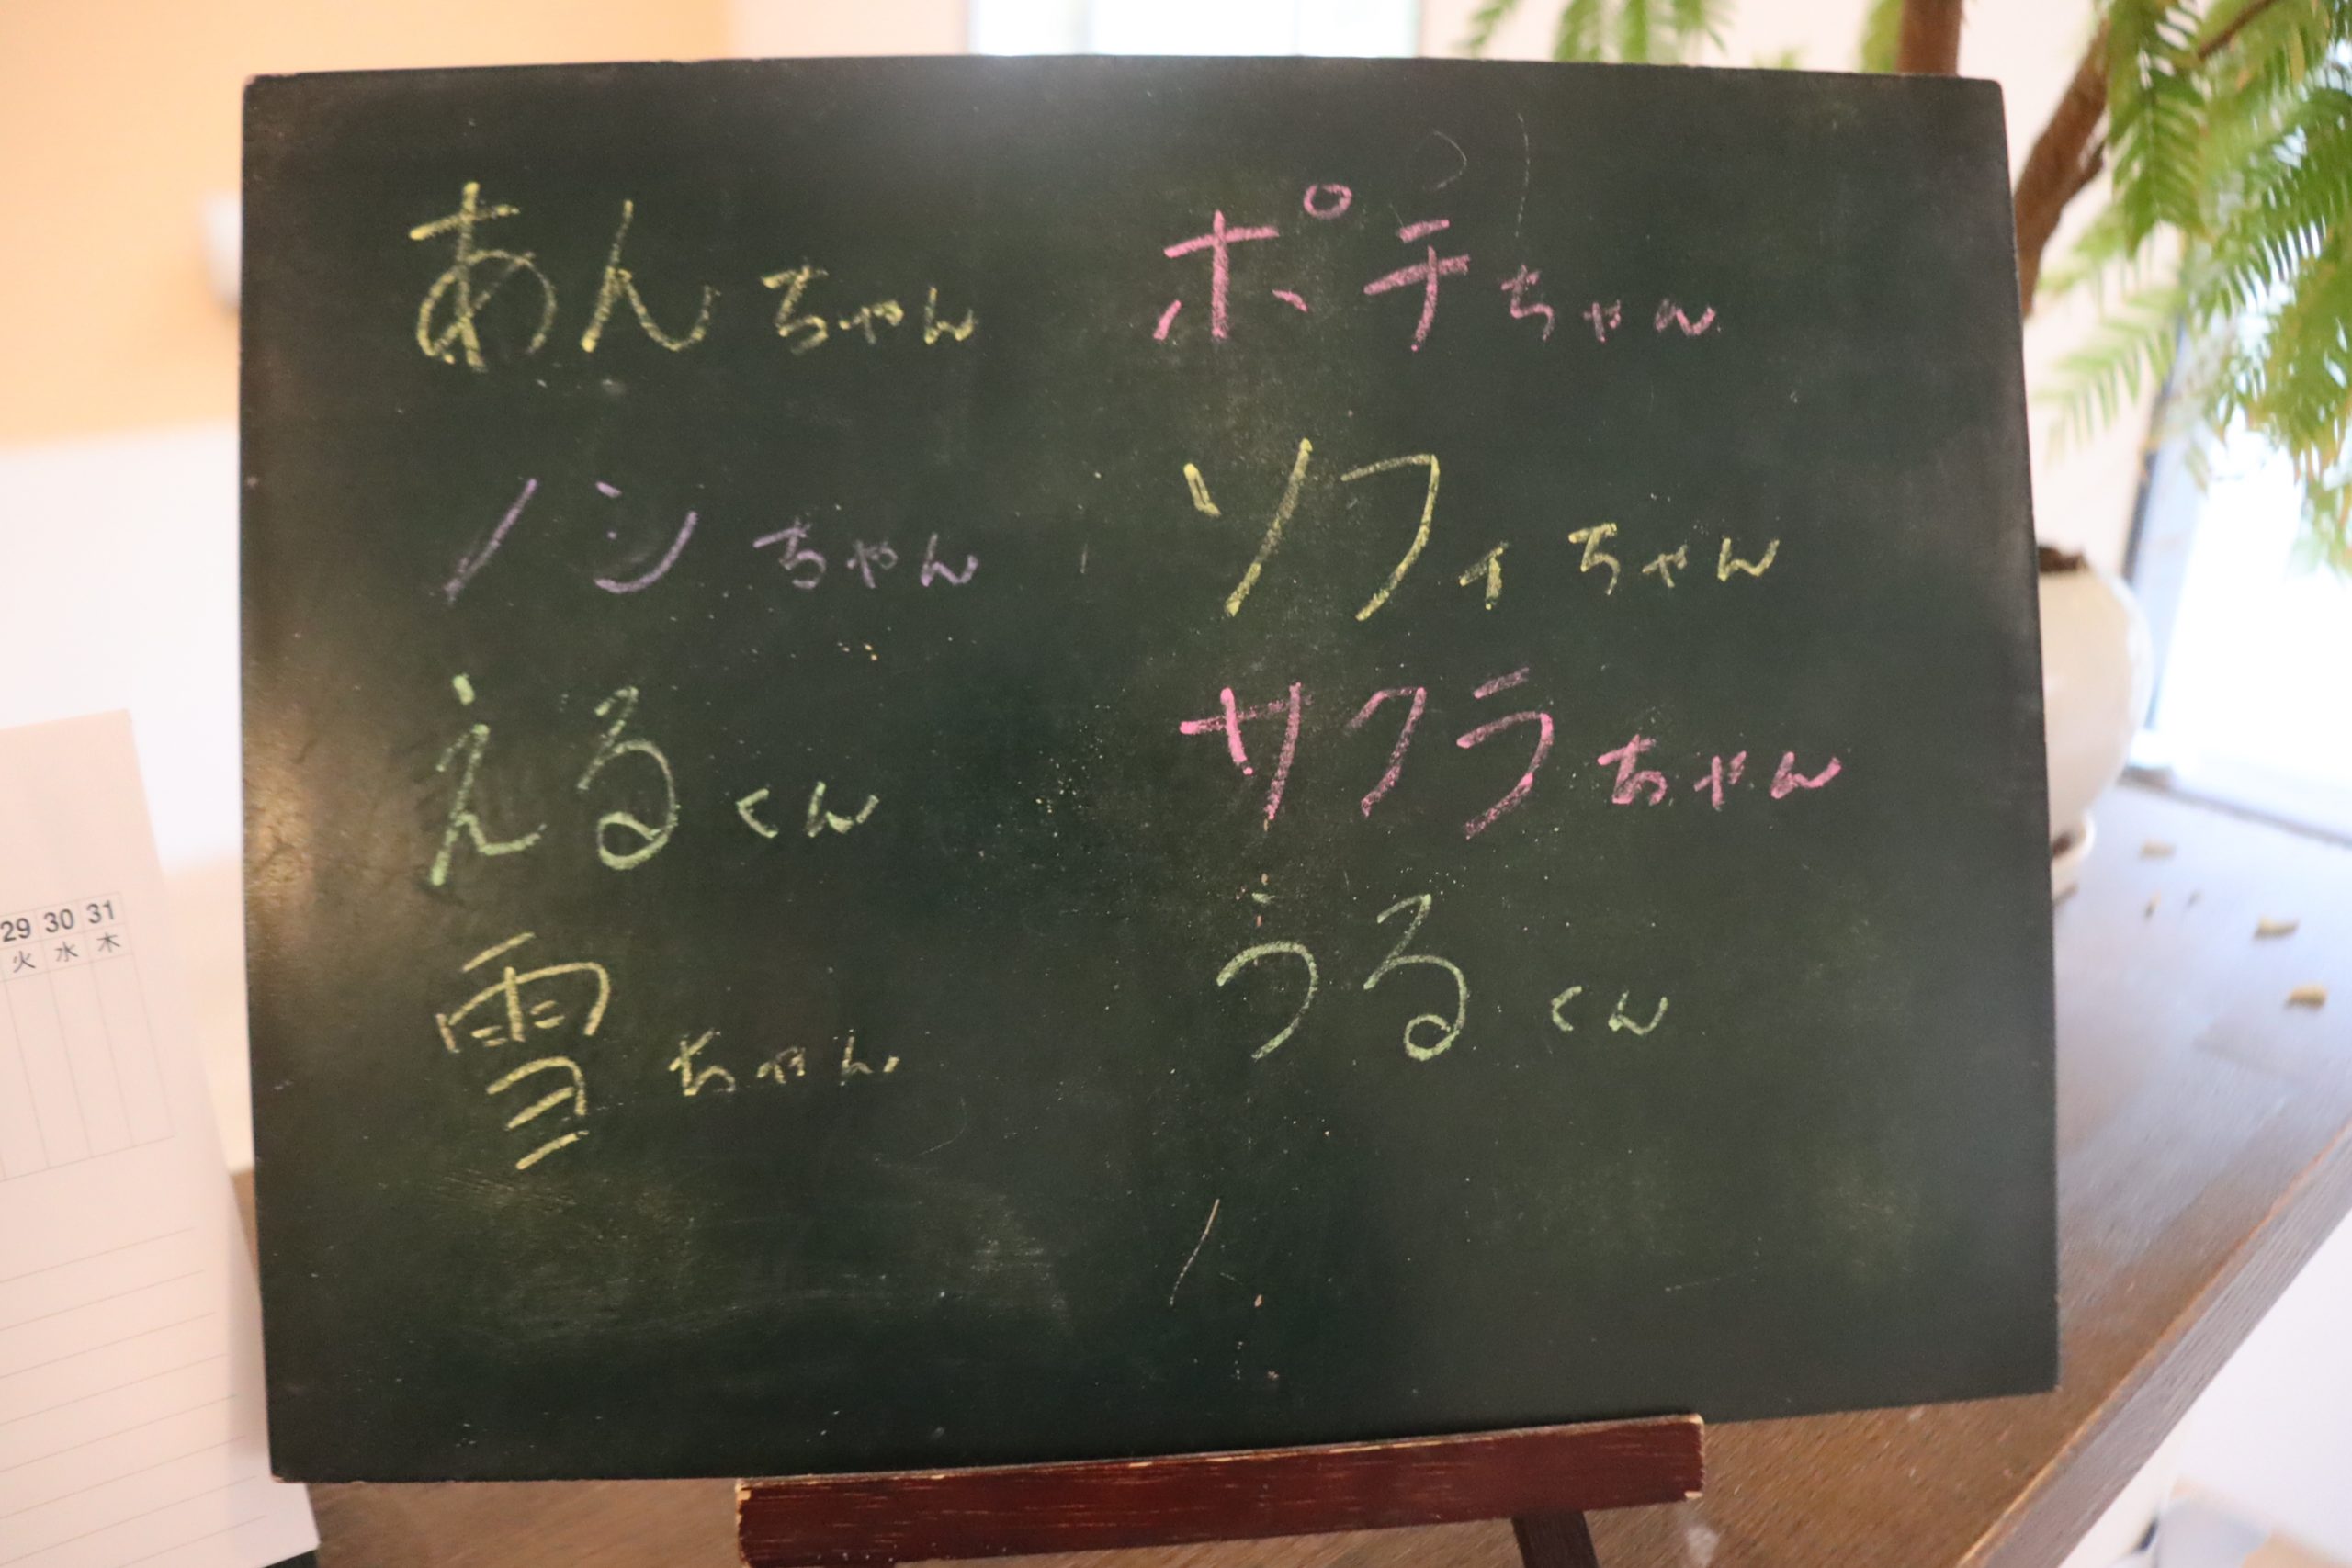 あんちゃん ポチちゃん
ノンちゃん ソフィちゃん
えるくん サクラちゃん
雪ちゃん うるくん
29 30 31
火 水 木